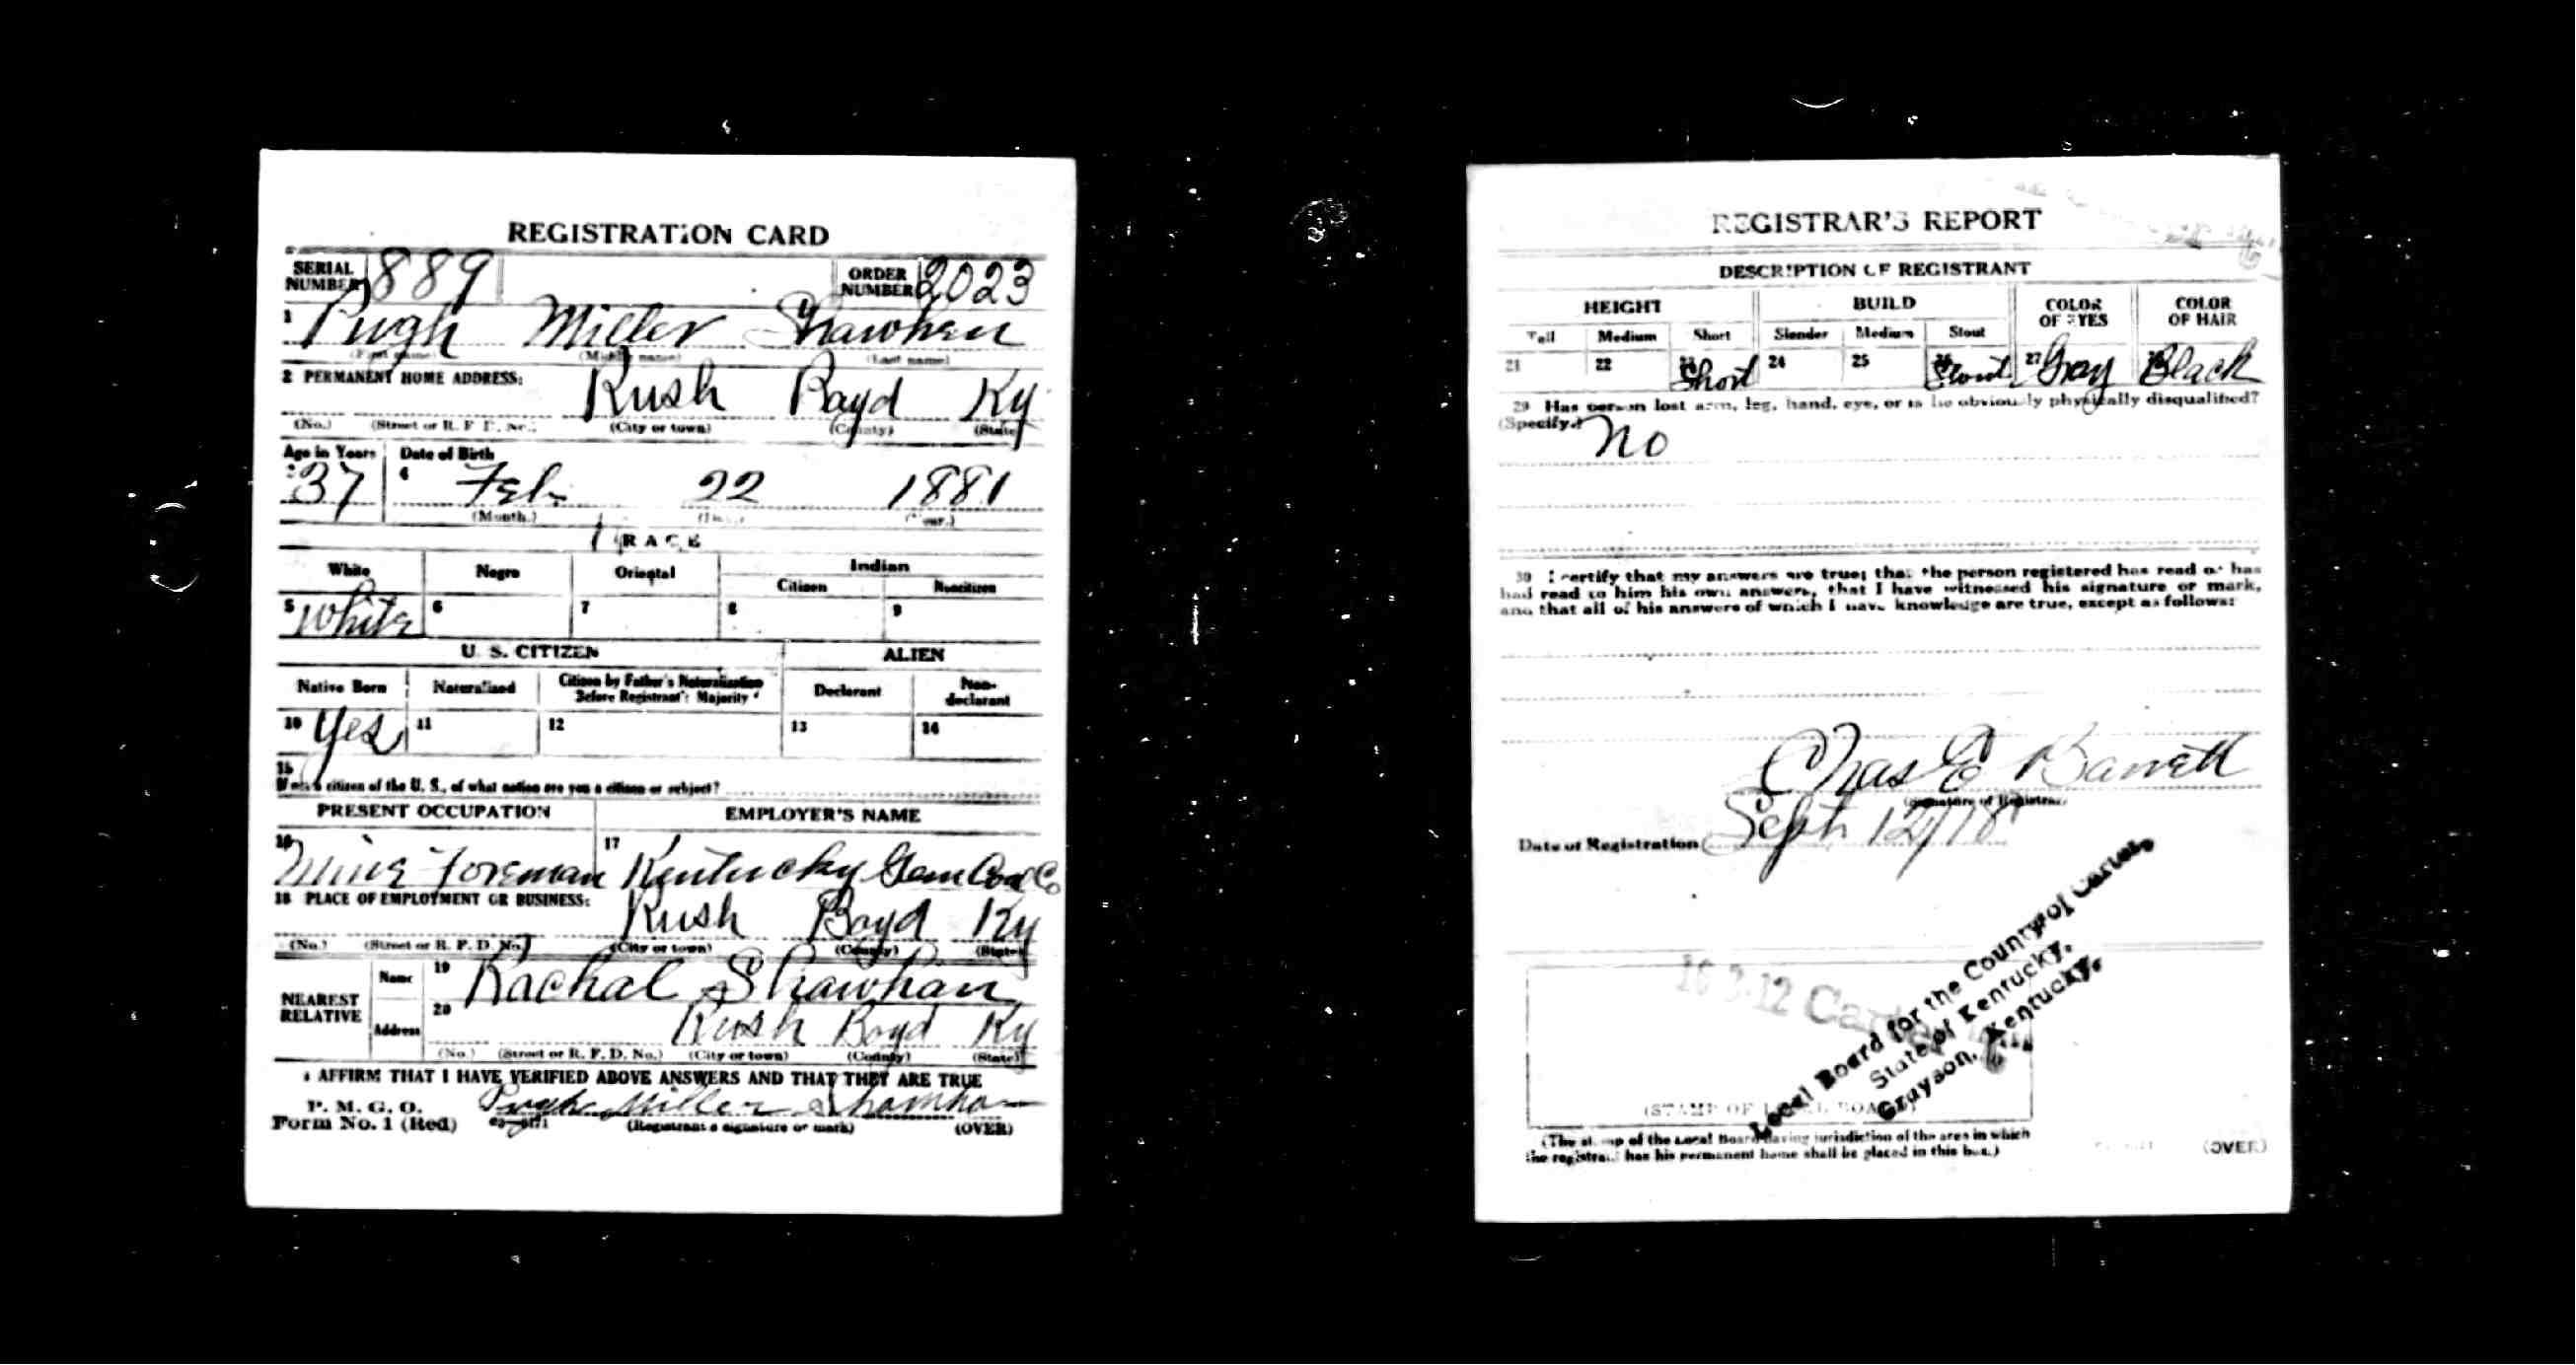 REGISTRATION CARD
SERIAL NUMBER 889 ORDER NUMBER 2023
1 Pugh Miller Shawhan
(First name) (Middle name) (Last name)
2 PERMANENT HOME ADDRESS:
Rush Boyd Ky
(No.) (Street or R. F. D. No.) (City or town) (County) (State)
Age in Years Date of Birth
37 4 Feb 22 1881
(Month.) (Day.) (Year.)
RACE
White Negro Oriental Indian
Citizen Noncitizen
5 White 6 7 8 9
U. S. CITIZEN ALIEN
Native Born Naturalized Citizen by Father's Naturalization Before Registrant's Majority Declarant Non-declarant
10 Yes 11 12 13 14
15
If not a citizen of the U. S., of what nation are you a citizen or subject?
PRESENT OCCUPATION EMPLOYER'S NAME
16 Mine Foreman 17 Kentucky Gem Coal Co
18 PLACE OF EMPLOYMENT OR BUSINESS:
Rush Boyd Ky
(No.) (Street or R. F. D. No.) (City or town) (County) (State)
NEAREST RELATIVE Name 19 Rachal Shawhan
Address 20 Rush Boyd Ky
(No.) (Street or R. F. D. No.) (City or town) (County) (State)
I AFFIRM THAT I HAVE VERIFIED ABOVE ANSWERS AND THAT THEY ARE TRUE
P. M. G. O.
Form No. 1 (Red) Pugh Miller Shawhan
(Registrant's signature or mark) (OVER)
REGISTRAR'S REPORT
DESCRIPTION OF REGISTRANT
HEIGHT BUILD COLOR OF EYES COLOR OF HAIR
Tall Medium Short Slender Medium Stout
21 22 23 Short 24 25 26 Stout 27 Gray Black
29 Has person lost arm, leg, hand, eye, or is he obviously physically disqualified?
(Specify.) No
30 I certify that my answers are true; that the person registered has read or has
had read to him his own answers, that I have witnessed his signature or mark,
and that all of his answers of which I have knowledge are true, except as follows:
Chas E Barrett
(Signature of Registrar)
Date of Registration Sept 12/18
Local Board for the County of Carter,
State of Kentucky,
Grayson, Kentucky.
(STAMP OF LOCAL BOARD)
(The stamp of the Local Board having jurisdiction of the area in which
the registrant has his permanent home shall be placed in this box.)
(OVER)